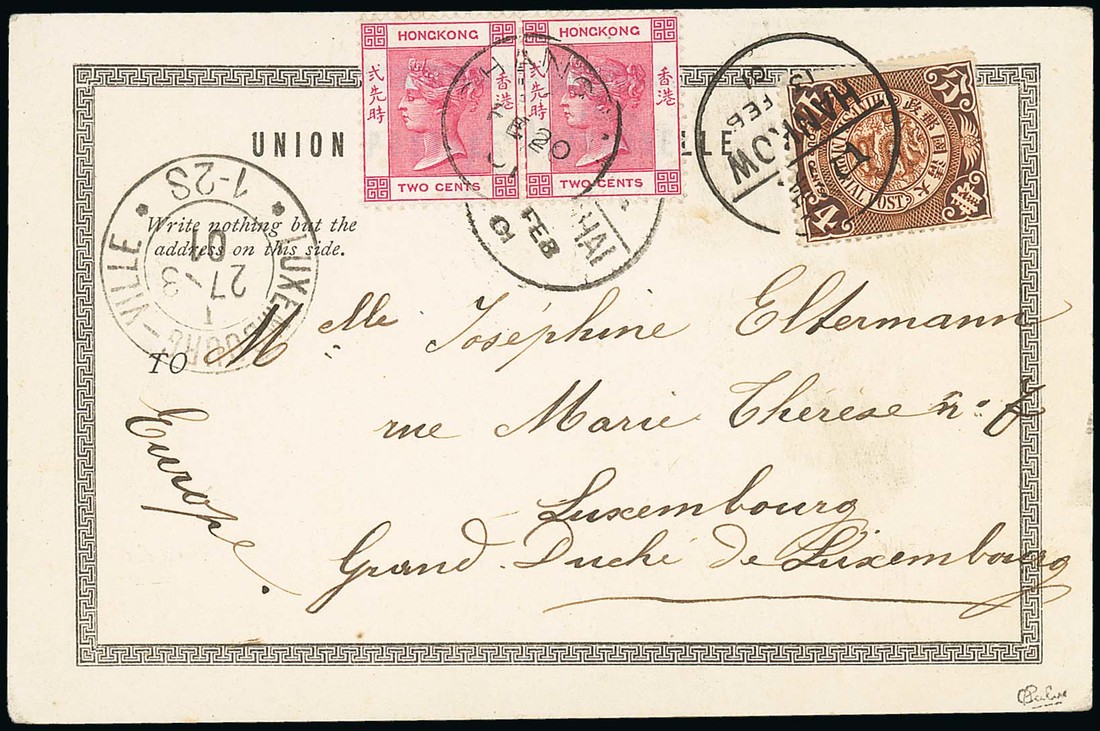 HONGKONG
貳先時
香港
TWO CENTS
HONGKONG
貳先時
香港
TWO CENTS
UNION
ELLE
HANKOW
FEB
SHANG
HAI
20
FEB
01
LUXEMBOURG-VILLE
1-2S
27-3
01
Write nothing but the
address on this side.
TO
Mlle Joséphine Eltermann
rue Marie Therese no.
Luxembourg
Grand Duché de Luxembourg
Europe.